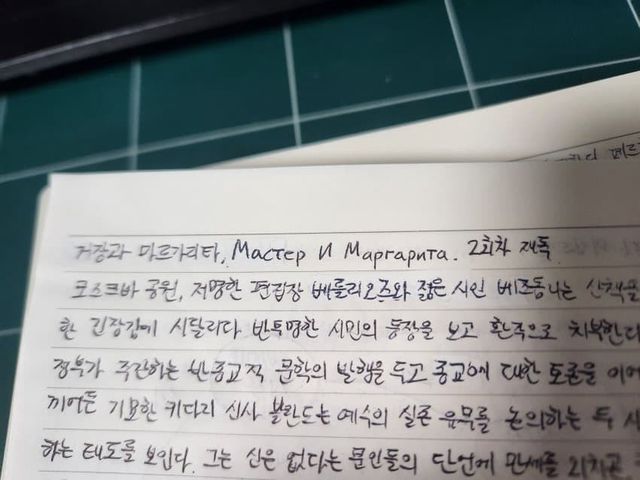 거장과 마르가리타, Мастер И Маргарита. 2회차 재독
모스크바 공원, 저명한 편집장 베를리오즈와 젊은 시인 베즈돔니는 산책을
한 긴장감에 시달리다 반투명한 시민의 등장을 보고 환각으로 치부한다
정부가 주관하는 반종교적 문학의 발행을 두고 종교에 대한 토론을 이어
끼어든 기묘한 키다리 신사 볼란드는 예수의 실존 유무를 논의하는 두 사
하는 태도를 보인다. 그는 신은 없다는 문인들의 단언에 만세를 외치고